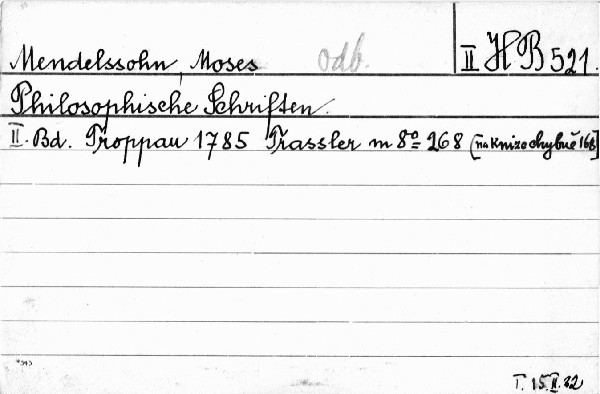 Mendelssohn, Moses odb. II HB 521.
Philosophische Schriften.
II. Bd. Troppau 1785 Trassler m 8º 268 [na knize chybně 168]
T. 15.II.22